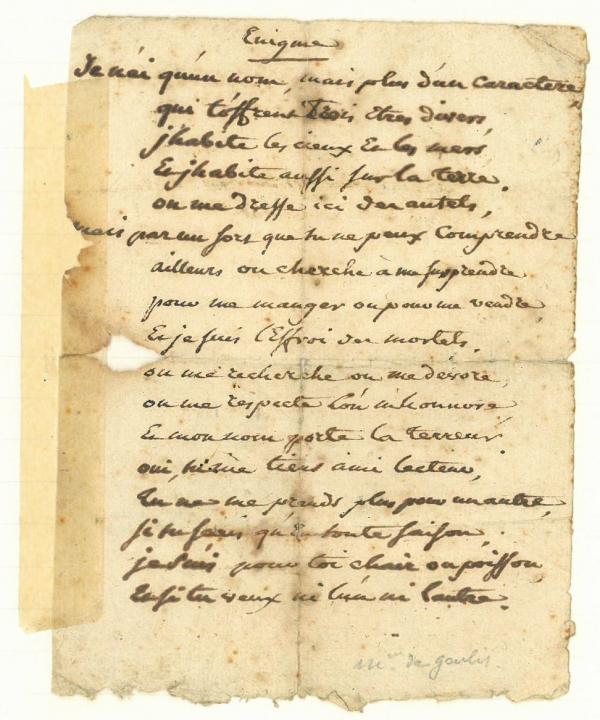 Enigme
Je n'ai qu'un nom, mais plus d'un caractere,
qui t'offrent trois etres divers,
j'habite les cieux Et les mers
Et j'habite aussi sur la terre.
on me dresse ici des autels,
mais par un sort que tu ne peux Comprendre
ailleurs on cherche à me surprendre
pour me manger ou pour me vendre,
Et je suis l'Effroi des mortels.
on me recherche on me dévore,
on me respecte l'on m'honnore
Et mon nom porte la terreur
oui, tiens ami lecteur,
Tu ne me prends plus pour un autre,
si tu sais qu'En toute saison,
je suis pour toi chair ou poisson,
Et si tu veux ni l'un ni l'autre.
de